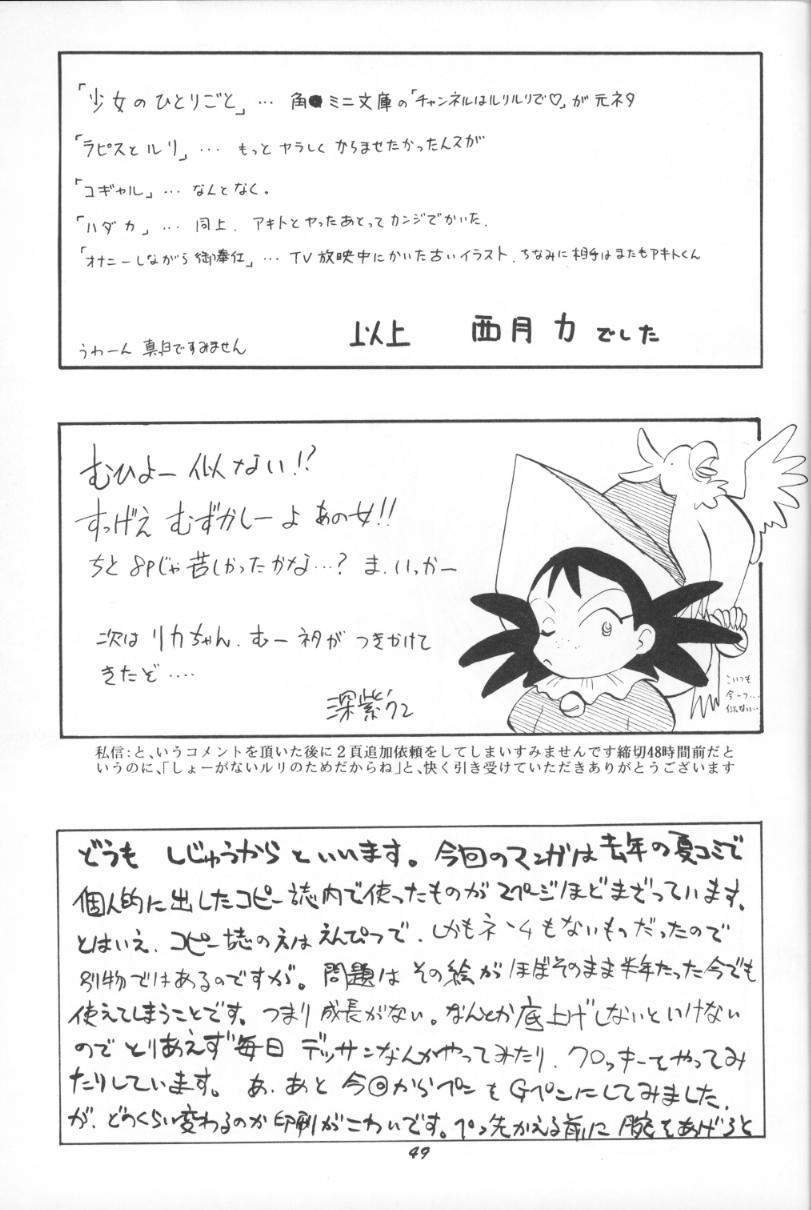 「少女のひとりごと」… 角●ミニ文庫の「チャンネルはルリルリで♡」が元ネタ
「ラピスとルリ」… もっとヤラしくからませたかったんスが
「コギャル」… なんとなく。
「ハダカ」… 同上、アキトとヤったあとってカンジでかいた。
「オナニーしながら御奉仕」… TV放映中にかいた古いイラスト、ちなみに相手はまたもアキトくん
以上 西月力でした
うわーん 真白ですみません
むひょー 似ない!?
すっげえ むずかしーよ あの女!!
ちと8Pじゃ苦しかったかな…? ま、いっかー
次はリカちゃん、むー ネタがつきかけて
きたぞ‥‥
深紫
こいつも
今一つ…
似ない…
私信：と、いうコメントを頂いた後に２頁追加依頼をしてしまいすみませんです締切48時間前だと
いうのに、「しょーがないルリのためだからね」と、快く引き受けていただきありがとうございます
どうも しじゅうからといいます。今回のマンガは去年の夏コミで
個人的に出したコピー誌内で使ったものが2ページほどまざっています。
とはいえ、コピー誌のえはえんぴつで、しかもネームもないものだったので
別物ではあるのですが。問題はその絵がほぼそのまま半年たった今でも
使えてしまうことです。つまり成長がない。なんとか底上げしないといけない
のでとりあえず毎日デッサンなんかやってみたり、クロッキーをやってみ
たりしています。あ、あと今回からペンもGペンにしてみました
が、どのくらい変わるのか印刷がこわいです。ペン先かえる前に腕をあげろと
49